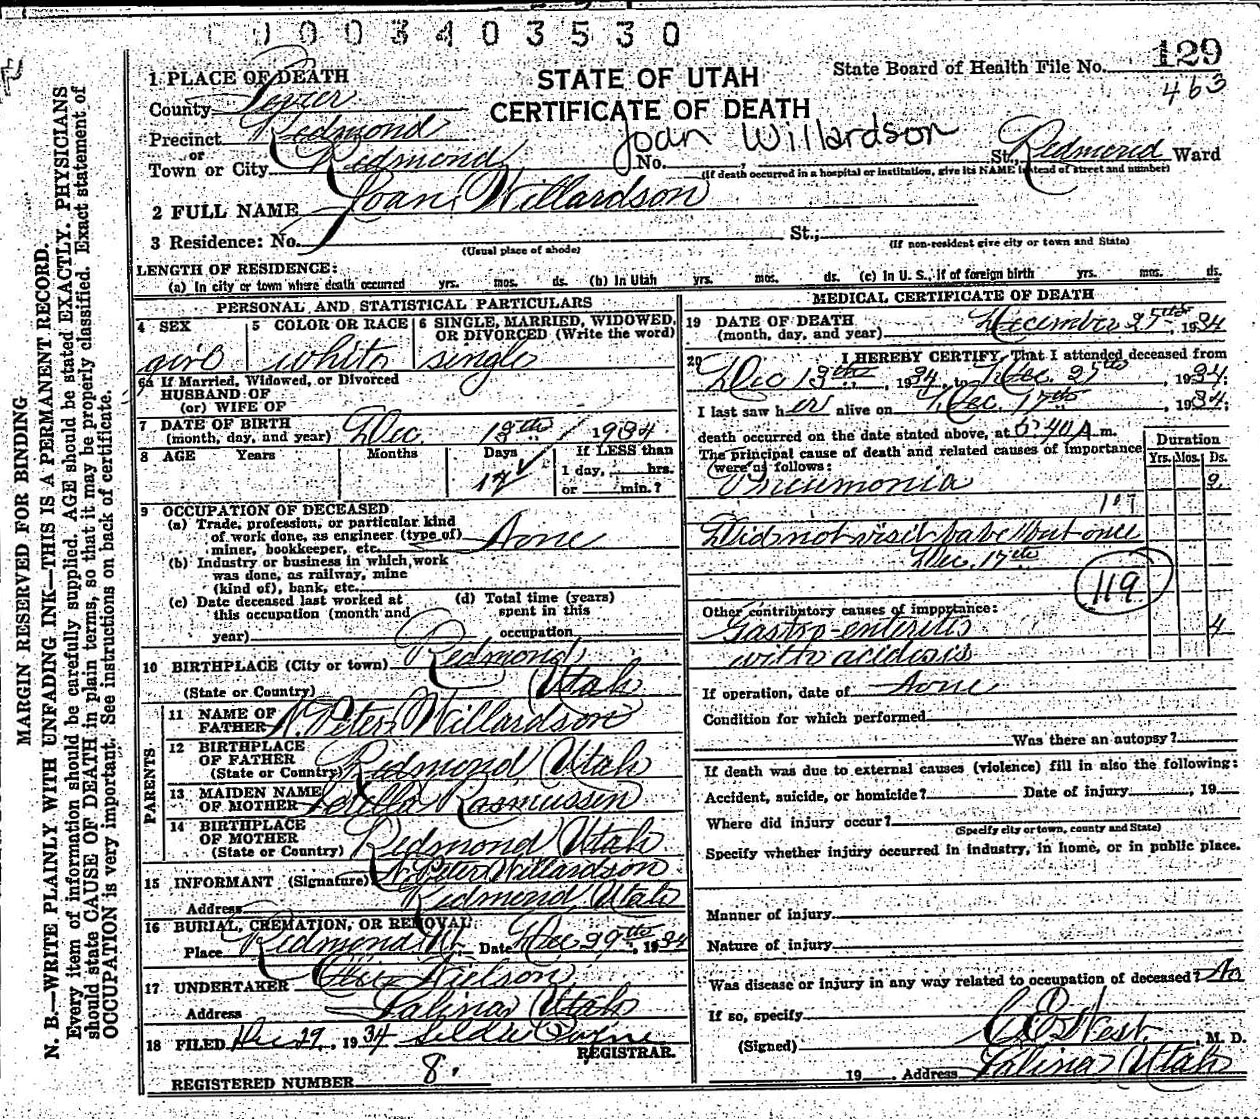 0 0 0 3 4 0 3 5 3 0
129
463
State Board of Health File No.
STATE OF UTAH
CERTIFICATE OF DEATH
1 PLACE OF DEATH
County Sevier
Precinct Redmond
or
Town or City Redmond
Joan Willardson
No. , St., Redmond Ward
(If death occurred in a hospital or institution, give its NAME instead of street and number)
2 FULL NAME Joan Willardson
3 Residence: No. St.;
(Usual place of abode) (If non-resident give city or town and State)
LENGTH OF RESIDENCE:
(a) In city or town where death occurred yrs. mos. ds. (b) In Utah yrs. mos. ds. (c) In U. S., if of foreign birth yrs. mos. ds.
PERSONAL AND STATISTICAL PARTICULARS
4 SEX girl
5 COLOR OR RACE white
6 SINGLE, MARRIED, WIDOWED, OR DIVORCED (Write the word) single
6a If Married, Widowed, or Divorced
HUSBAND OF
(or) WIFE OF
7 DATE OF BIRTH
(month, day, and year) Dec. 13th 1934
8 AGE Years Months Days If LESS than
1 day, hrs.
or min.?
9 OCCUPATION OF DECEASED
(a) Trade, profession, or particular kind
of work done, as engineer (type of)
miner, bookkeeper, etc. None
(b) Industry or business in which work
was done, as railway, mine
(kind of), bank, etc.
(c) Date deceased last worked at
this occupation (month and
year)
(d) Total time (years)
spent in this
occupation
10 BIRTHPLACE (City or town) Redmond
(State or Country) Utah
PARENTS
11 NAME OF
FATHER N. Peter Willardson
12 BIRTHPLACE
OF FATHER
(State or Country) Redmond Utah
13 MAIDEN NAME
OF MOTHER Rasmussen
14 BIRTHPLACE
OF MOTHER
(State or Country) Redmond Utah
15 INFORMANT (Signature) N. Peter Willardson
Address Redmond Utah
16 BURIAL, CREMATION, OR REMOVAL
Place Redmond Ut. Date Dec 29th, 1934
17 UNDERTAKER Nielson
Address Salina Utah
18 FILED Dec 29, 1934
REGISTRAR.
REGISTERED NUMBER 8.
MEDICAL CERTIFICATE OF DEATH
19 DATE OF DEATH
(month, day, and year) December 1934
20 I HEREBY CERTIFY, That I attended deceased from
Dec 13th, 1934, to Dec. , 1934.
I last saw her alive on Dec. 17th, 1934,
death occurred on the date stated above, at 5:40 A. m.
The principal cause of death and related causes of importance
were as follows:
Duration
Yrs. Mos. Ds.
Pneumonia
107
Did not visit babe but once
Dec. 17th
119
Other contributory causes of importance:
Gastro-enteritis 4
with acidosis
If operation, date of None
Condition for which performed
Was there an autopsy?
If death was due to external causes (violence) fill in also the following:
Accident, suicide, or homicide? Date of injury , 19
Where did injury occur?
(Specify city or town, county and State)
Specify whether injury occurred in industry, in home, or in public place.
Manner of injury
Nature of injury
Was disease or injury in any way related to occupation of deceased? No
If so, specify
(Signed) C. E. West, M. D.
19 Address Salina Utah
MARGIN RESERVED FOR BINDING
N. B.—WRITE PLAINLY WITH UNFADING INK—THIS IS A PERMANENT RECORD.
Every item of information should be carefully supplied. AGE should be stated EXACTLY. PHYSICIANS
should state CAUSE OF DEATH in plain terms, so that it may be properly classified. Exact statement of
OCCUPATION is very important. See instructions on back of certificate.